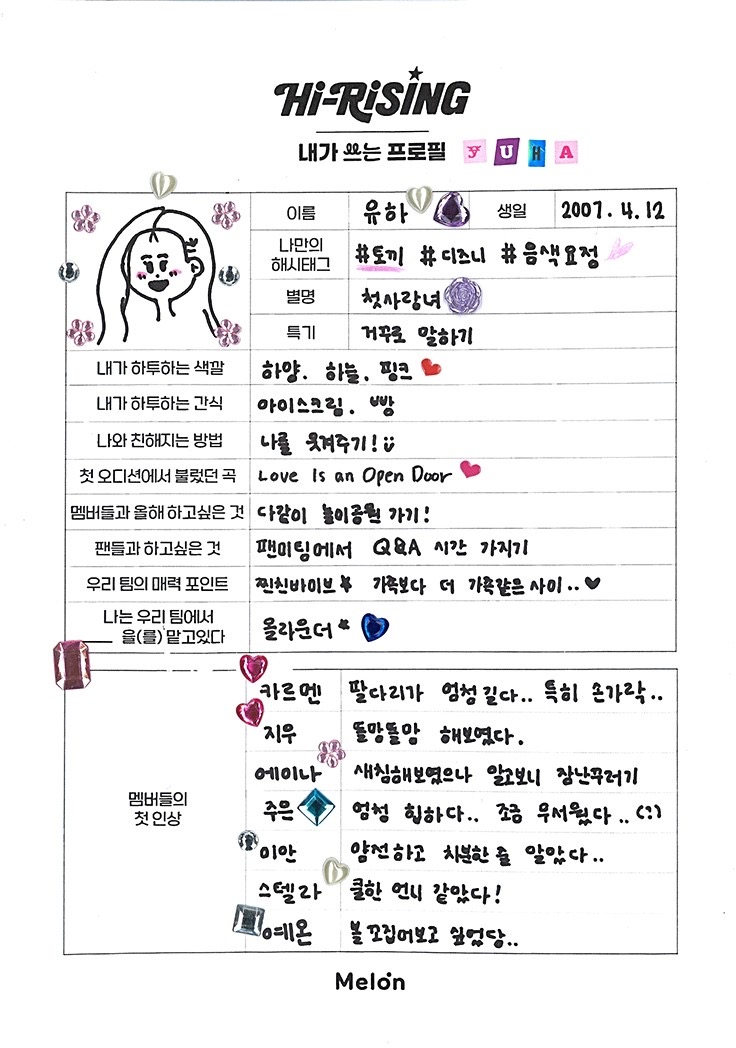 Hi-RiSiNG
내가 쓰는 프로필 YUHA
이름 유하 생일 2007. 4. 12
나만의 해시태그 #토끼 #디즈니 #음색요정
별명 첫사랑녀
특기 거꾸로 말하기
내가 하투하는 색깔 하양. 하늘. 핑크
내가 하투하는 간식 아이스크림. 빵
나와 친해지는 방법 나를 웃겨주기!
첫 오디션에서 불렀던 곡 Love Is an Open Door
멤버들과 올해 하고싶은 것 다같이 놀이공원 가기!
팬들과 하고싶은 것 팬미팅에서 Q&A 시간 가지기
우리 팀의 매력 포인트 찐친바이브 가족보다 더 가족같은 사이..♥
나는 우리 팀에서
____ 을(를) 맡고있다 올라운더*
멤버들의
첫 인상
카르멘 팔다리가 엄청 길다.. 특히 손가락..
지우 똘망똘망 해보였다.
에이나 새침해보였으나 알고보니 장난꾸러기
주은 엄청 힙하다.. 조금 무서웠다..
이안 얌전하고 차분한 줄 알았다..
스텔라 쿨한 언니 같았다!
예온 볼 꼬집어보고 싶었당..
Melon